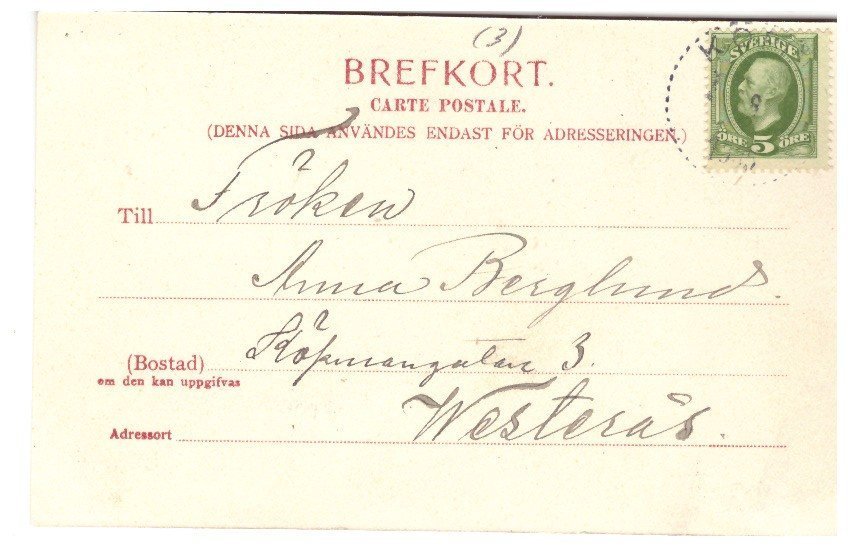 (3)
BREFKORT.
CARTE POSTALE.
(DENNA SIDA ANVÄNDES ENDAST FÖR ADRESSERINGEN.)
SVERIGE
ÖRE 5 ÖRE
Till Fröken
Anna Berglund.
(Bostad) Köpmangatan 3.
om den kan uppgifvas
Adressort Westerås.